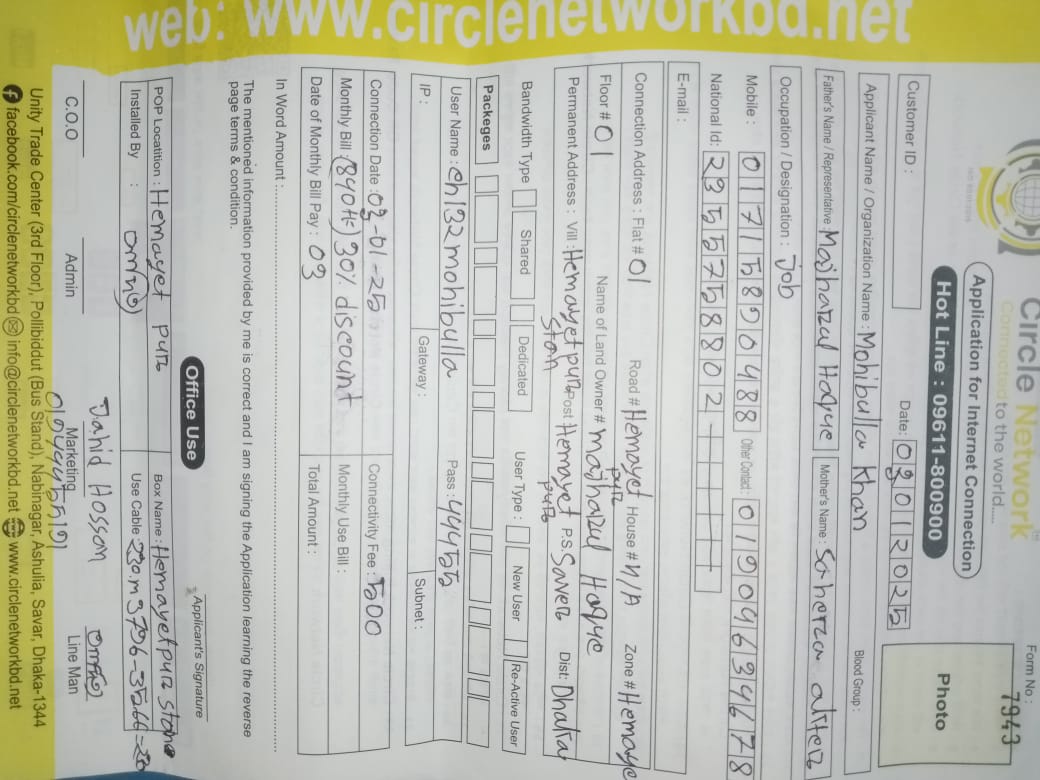 Form No :
7943
Circle Network
Connected to the world.....
ISO 9001:2015
Application for Internet Connection
Hot Line : 09611-800900
Photo
Customer ID :
Date: 03 01 2025
Applicant Name / Organization Name : Mohibulla Khan
Blood Group :
Father's Name / Representative Majharul Haque
Mother's Name : Saherza akter
Occupation / Designation : Job
Mobile : 01715890488
Other Contact : 01909639678
National Id: 2355758802
E-mail :
Connection Address : Flat # 01 Road # Hemayet pur House # N/A Zone # Hemaye
Floor # 01 Name of Land Owner # majharul Haque
Permanent Address : Vill : Hemayet pur stan Post Hemayet pur P.S. Saver Dist: Dhaka
Bandwidth Type Shared Dedicated User Type : New User Re-Active User
Packeges
User Name : ch132mohibulla Pass : 44455
IP : Gateway : Subnet :
Connection Date : 03-01-25 Connectivity Fee : 500
Monthly Bill : (840tk) 30% discount Monthly Use Bill :
Date of Monthly Bill Pay : 03 Total Amount :
In Word Amount :
The mentioned information provided by me is correct and I am signing the Application learning the reverse
page terms & condition.
Applicant's Signature
Office Use
POP Locatition : Hemayet pur Box Name : Hemayetpur stane
Installed By : Use Cable : 230.m 3796-3566-230
Jahid Hossom
01944475191
C.O.O Admin Marketing Line Man
Unity Trade Center (3rd Floor), Pollibiddut (Bus Stand), Nabinagar, Ashulia, Savar, Dhaka-1344
facebook.com/circlenetworkbd info@circlenetworkbd.net www.circlenetworkbd.net
web: www.circlenetworkbd.net